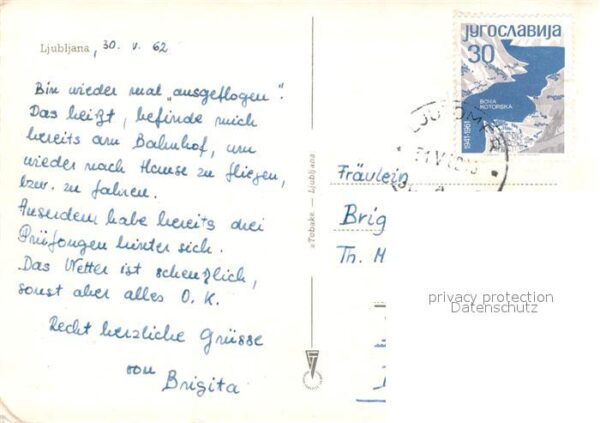 Ljubljana, 30. V. 62
Bin wieder mal „ausgeflogen".
Das heißt, befinde mich
bereits am Bahnhof, um
wieder nach Hause zu fliegen,
bzw. zu fahren.
Ausserdem habe bereits drei
Prüfungen hinter sich.
Das Wetter ist scheuzlich,
sonst aber alles O.K.
Recht herzliche Grüsse
von
Brigita
»Tobak« — Ljubljana
југославија
30
BOKA
KOTORSKA
1941-1961
Fräulein
Brig
Th. M
privacy protection
Datenschutz